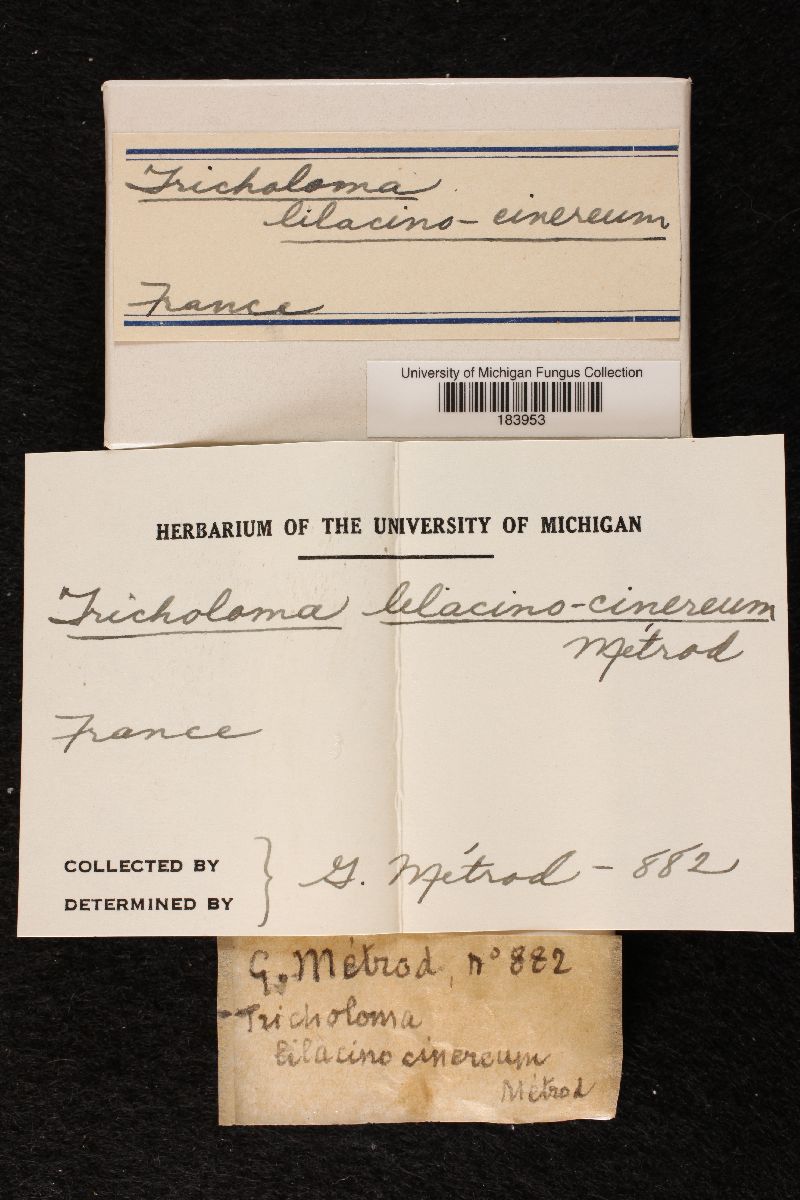 Tricholoma
lilacino-cinereum
France
University of Michigan Fungus Collection
183953
HERBARIUM OF THE UNIVERSITY OF MICHIGAN
Tricholoma lilacino-cinereum
Métrod
France
COLLECTED BY
DETERMINED BY } G. Métrod - 882
G. Métrod, n° 882
Tricholoma
lilacino cinereum
Métrod